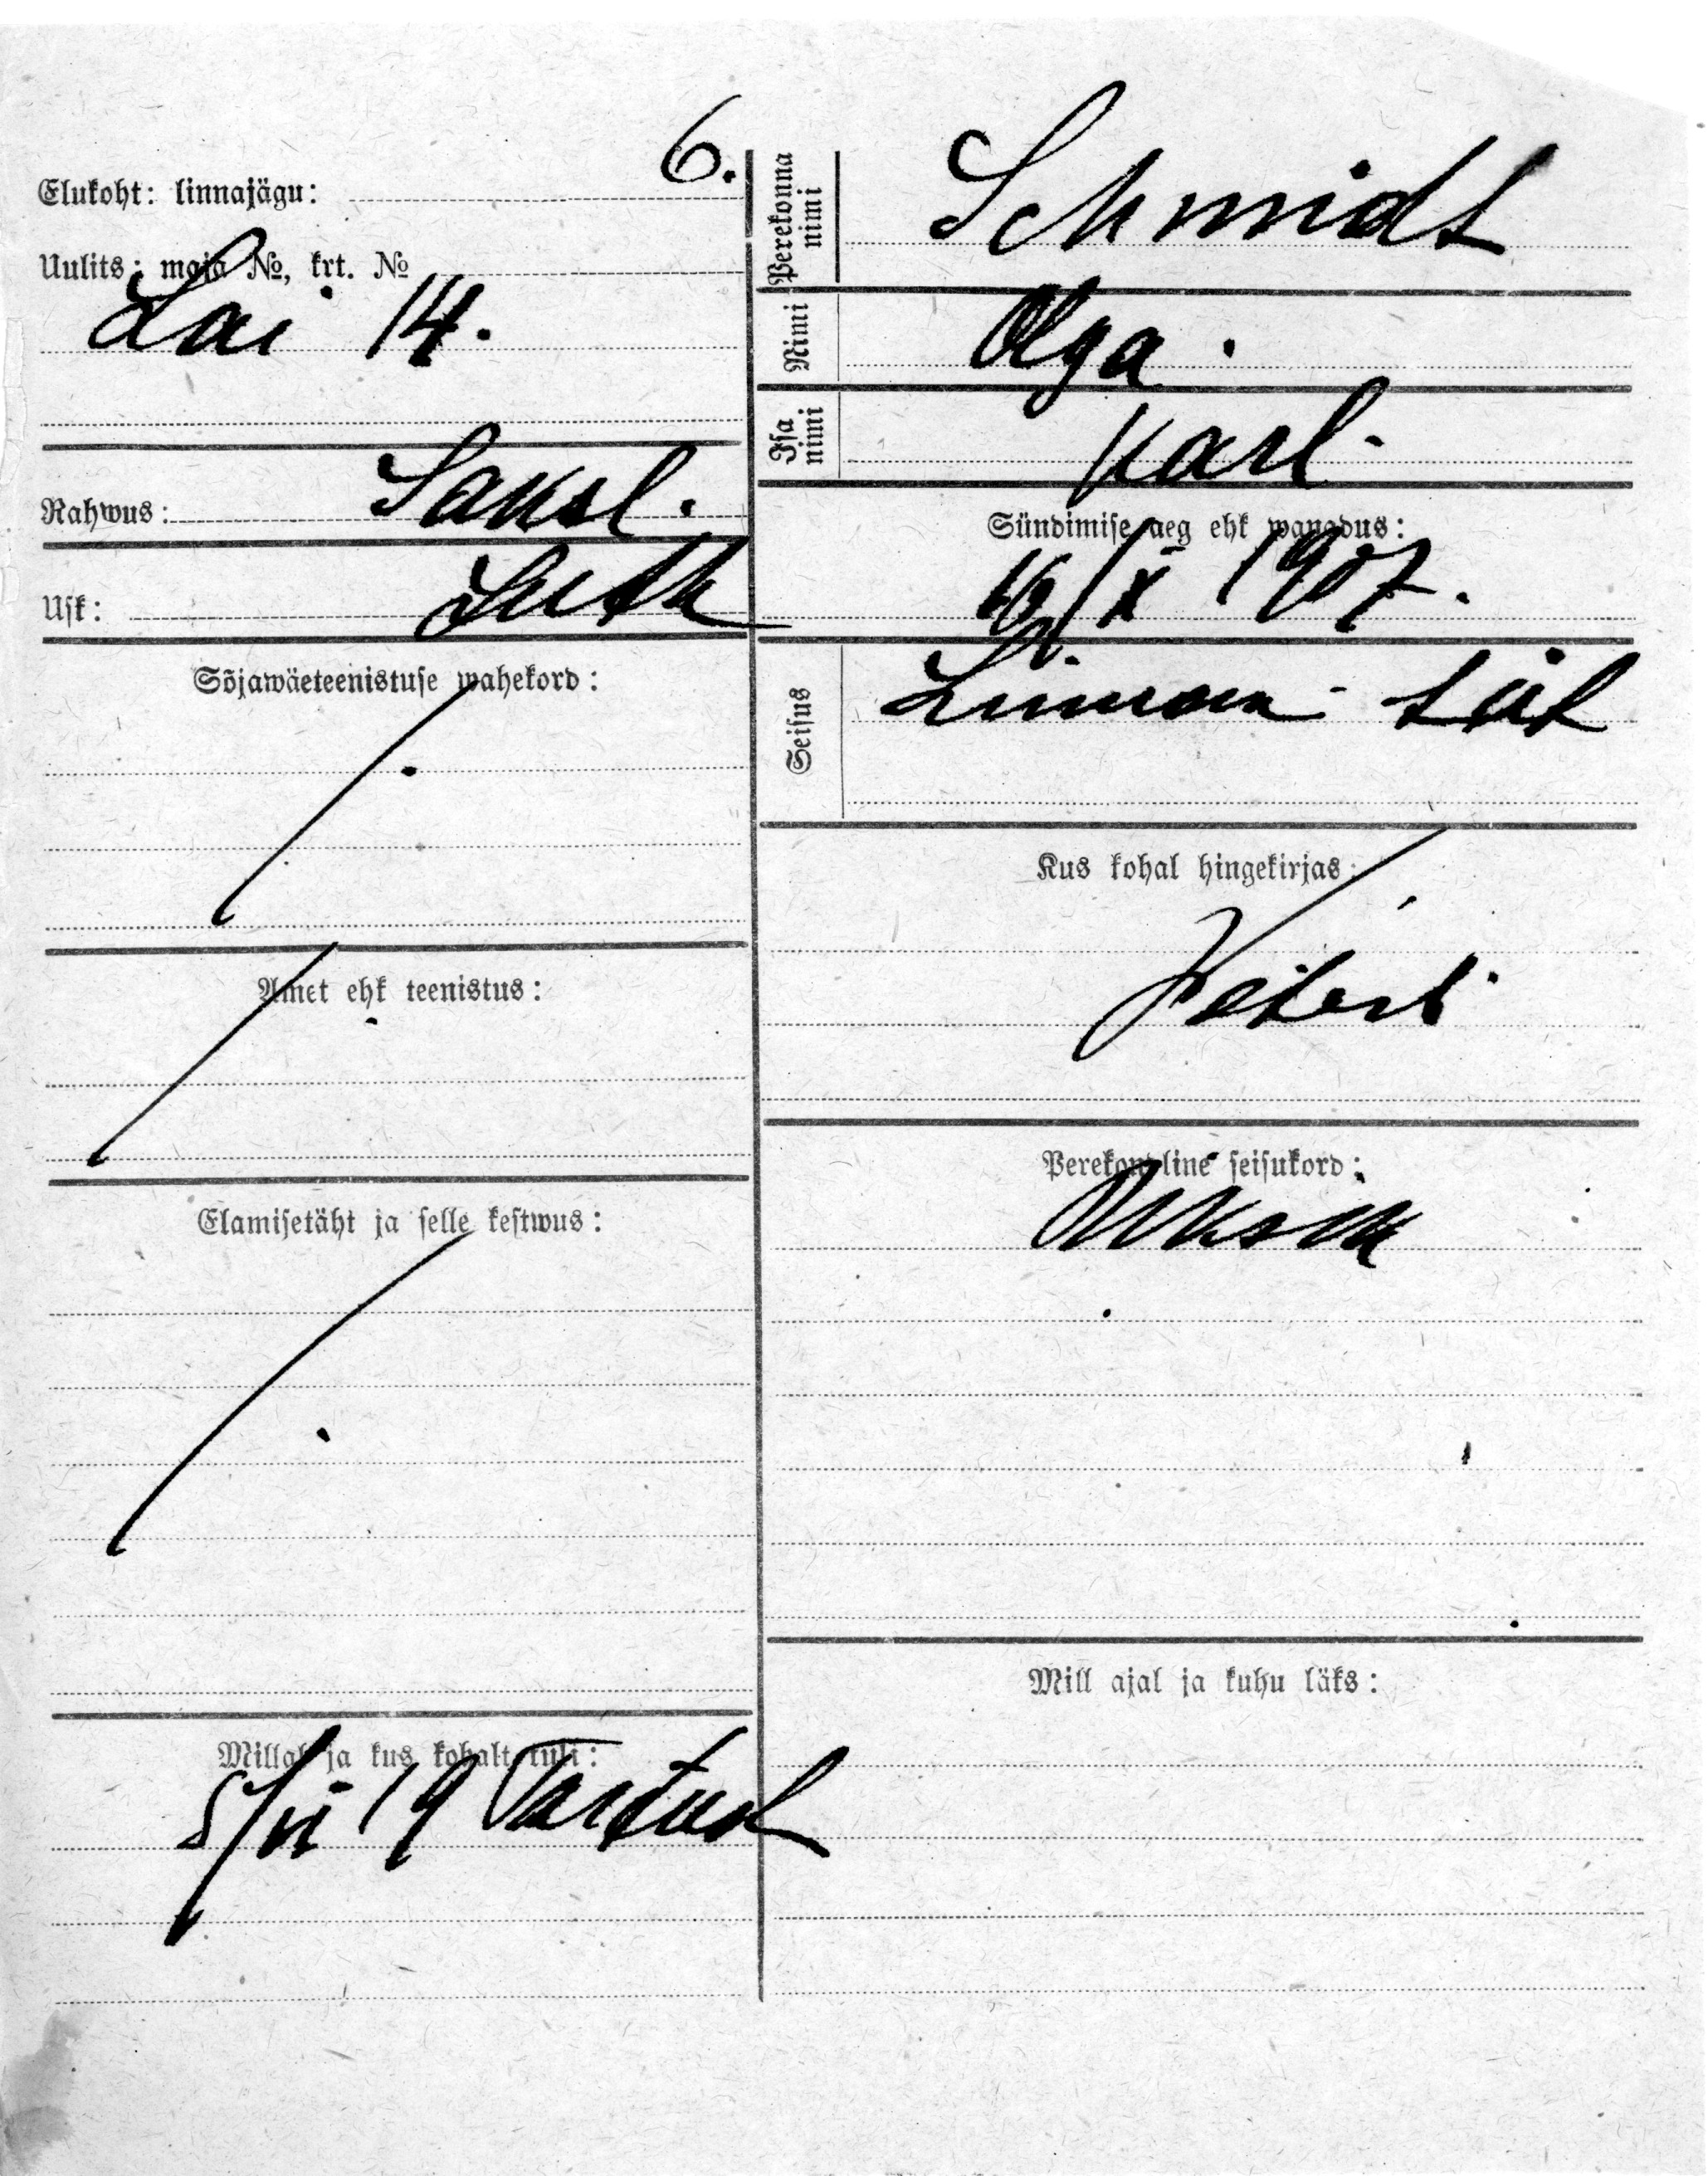 6.
Elukoht: linnajägu:
Uulits: maja №, krt. №
Lai 14.
Rahwus: Saksl.
Usk: Luth
Sõjawäeteenistuse wahekord:
Amet ehk teenistus:
Elamisetäht ja selle kestwus:
Millal ja kus kohalt tuli:
5/VI 19 Tartust
Perekonna nimi
Schmidt
Nimi
Olga.
Isa nimi
Karl.
Sündimise aeg ehk wanadus:
16/X 1907.
Seisus
Kus kohal hingekirjas:
Perekondline seisukord:
Mill ajal ja kuhu läks: